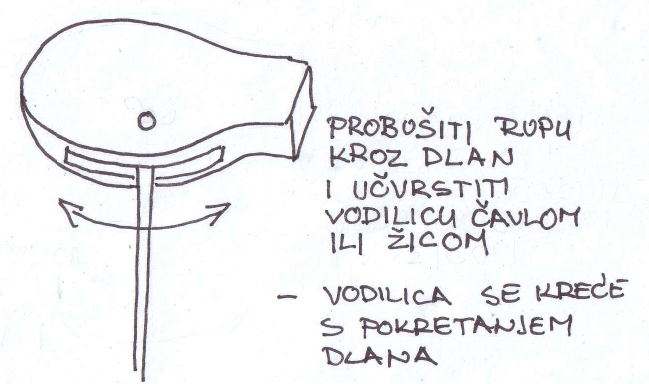 PROBUŠITI RUPU
KROZ DLAN
I UČVRSTITI
VODILICU ČAVLOM
ILI ŽICOM
– VODILICA SE KREĆE
S POKRETANJEM
DLANA